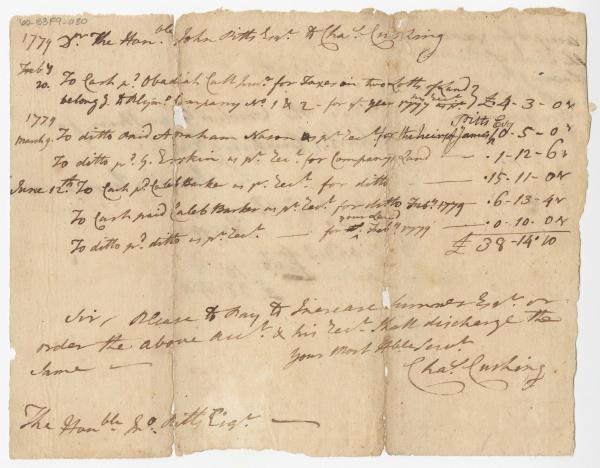 60-53F9-030
1779 Dr. The Honble John Pitts Esqr. to Chas. Cushing
Feby
20. To Cash pd. Obadiah Call Junr. for Taxes on two Lotts of Land
belong'g. to Company No. 1 & 2 - for ye. year 1777 as pr. Rect. £4-3-0
1779
March 9. To ditto paid Abraham Nason as pr. Rect. for the heirs of James Pitts Esq 0-5-0
To ditto pd. G. Erskin as pr. Rect. for Company Land - 1-12-6
June 12th. To Cash pd. Caleb Barker as pr. Rect. for ditto - 15-11-0
To Cash paid Caleb Barker as pr. Rect. for ditto Feby. 1779 - 6-13-4
To ditto pd. ditto as pr. Rect. - for your Land Feby. 1779 - 0-10-0
£38-14-10
Sir, Please to Pay to Increase Sumner Esqr. or
order the above acct. & his Rect. shall discharge the
same -
Your Most Hble Servt.
Chas. Cushing
The Honble Jno. Pitts Esqr. -